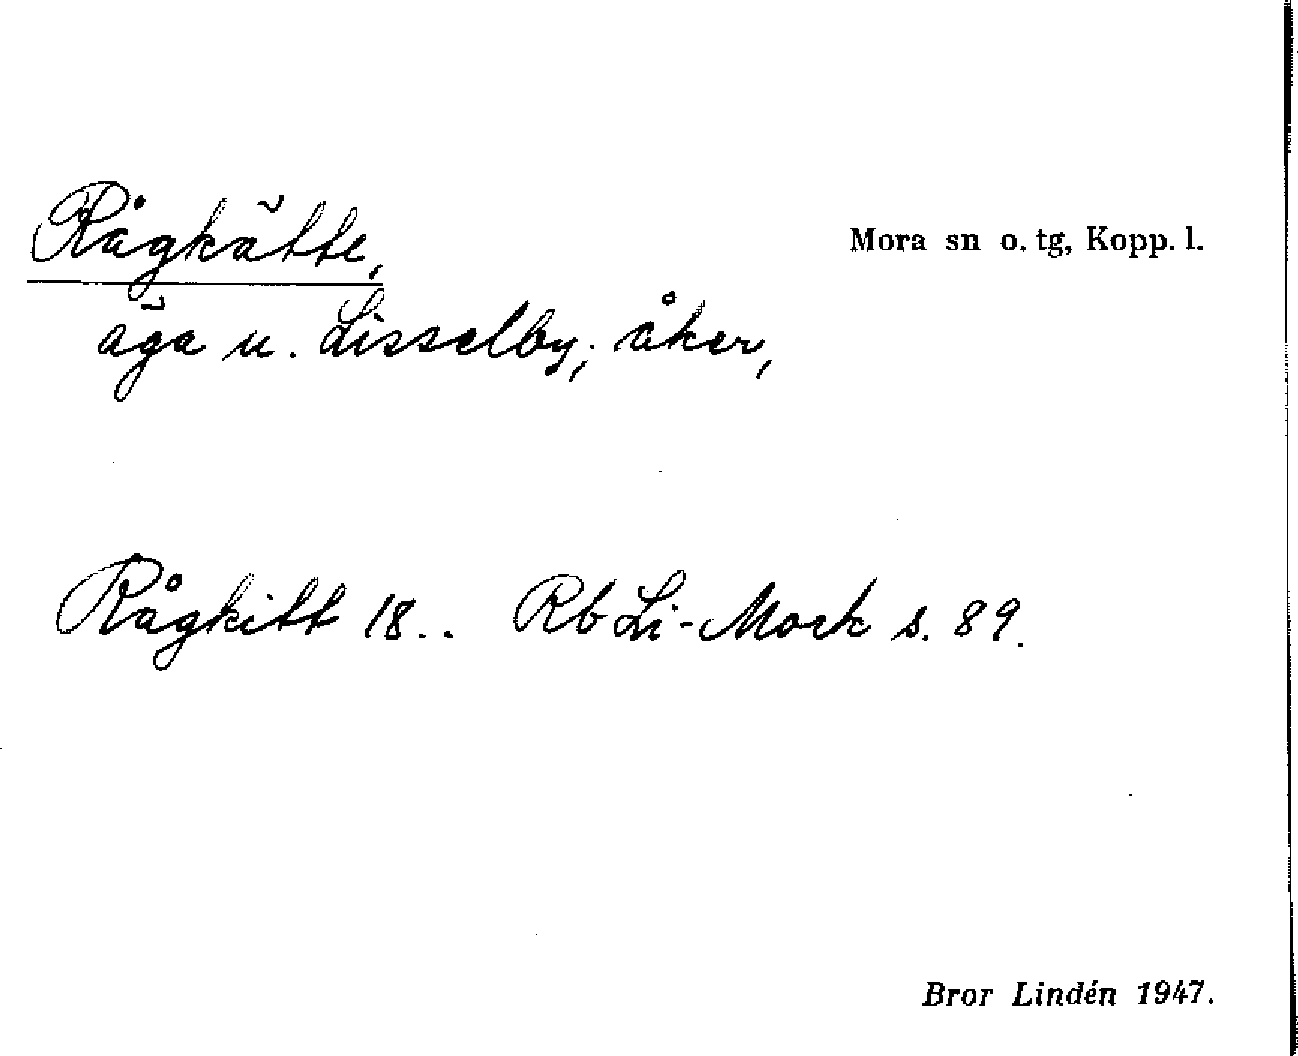 Rågkätte,
Mora sn o. tg, Kopp. l.
äga u. Lisselby; åker,
Rågkitt 18.. Rb Li-Mork s. 89.
Bror Lindén 1947.